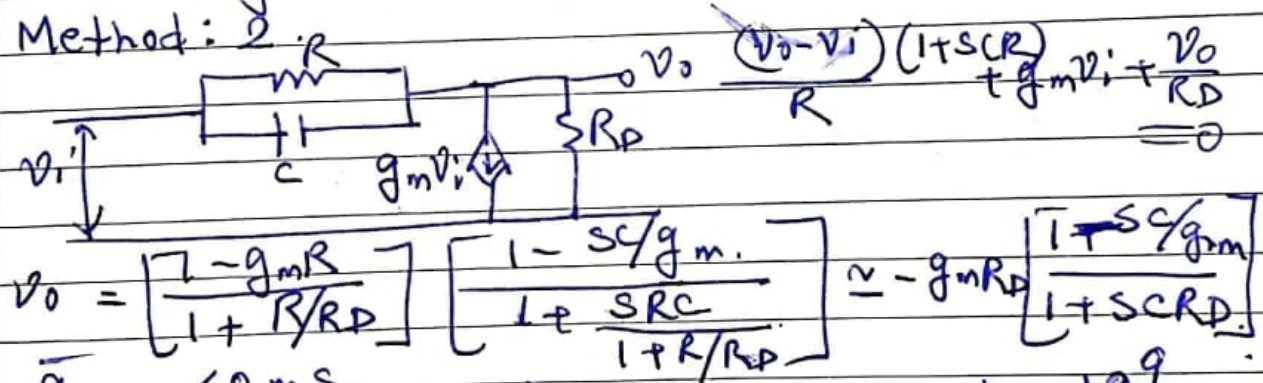 Method: 2.
R
C
vi
gmvi
RD
vo
(vo-vi)(1+SCR)/R + gmvi + vo/RD = 0
vo = [1-gmR / 1+R/RD] [1-SC/gm. / 1+ SRC/1+R/RD] ≃ -gmRD [1-SC/gm / 1+SCRD.]